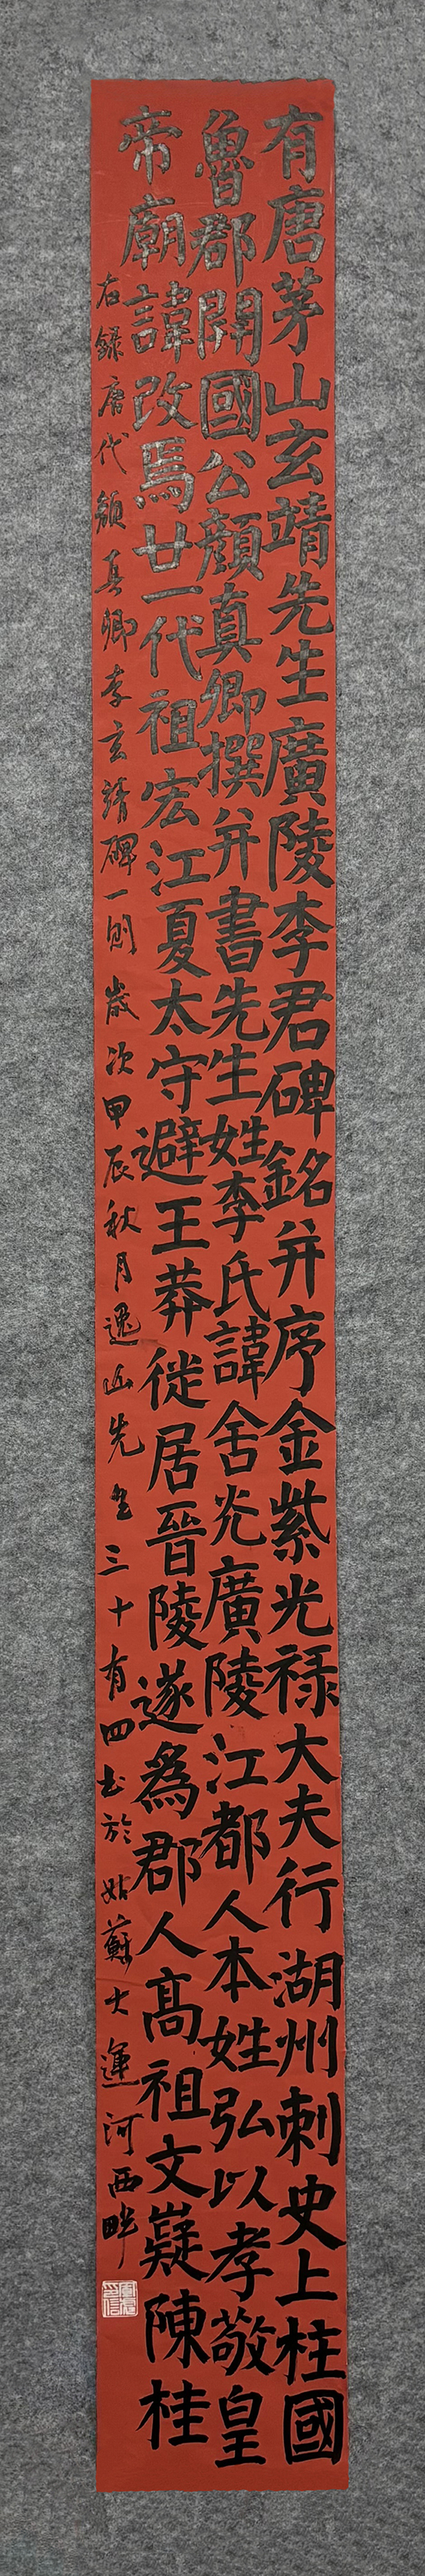 有唐茅山玄靖先生廣陵李君碑銘并序金紫光祿大夫行湖州刺史上柱國
魯郡開國公顏真卿撰并書先生姓李氏諱含光廣陵江都人本姓弘以孝敬皇
帝廟諱改焉廿一代祖宏江夏太守避王莽徙居晉陵遂爲郡人高祖文嶷陳桂
右錄唐代顏真卿李玄靖碑一則歲次甲辰秋月逸山先生三十有四書於姑蘇大運河西畔